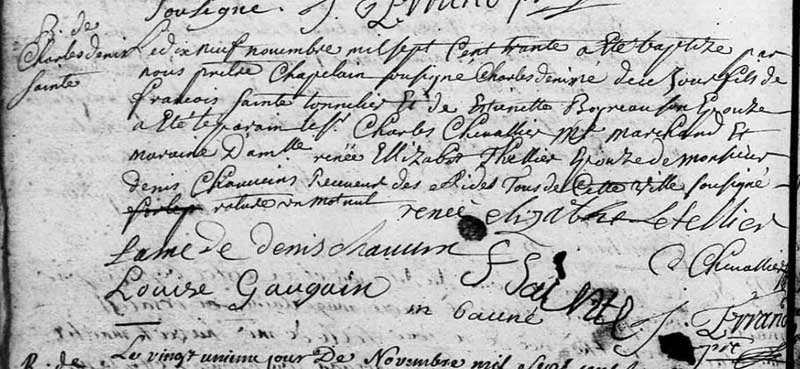 Sousigné. J. Errand p
B. de
Charles denix
Sainte
Le dix neuf novembre mil sept cent trante a Eté baptizé par
nous prêtre Chapelain sousigné Charles denix né de ce Jour fils de
francois Sainte tonnelier Et de Estienette Boyreau son Epouze
a Eté le parain le Sr. Charles Chevallier Me marchand Et
maraine Damlle renée Ellizabet Thellier Epouze de monsieur
denis Chauvins Receveur des Aides Tous de Cette Ville sousigné
rature un mot nul
renée elizabeth Letellier
fame de denis chauvin
S Sainte
C Chevallier
Louise Gauguin
m bauné
J. Errand
prt
Le vingt unieme jour De Novembre mil sept cent
B. de